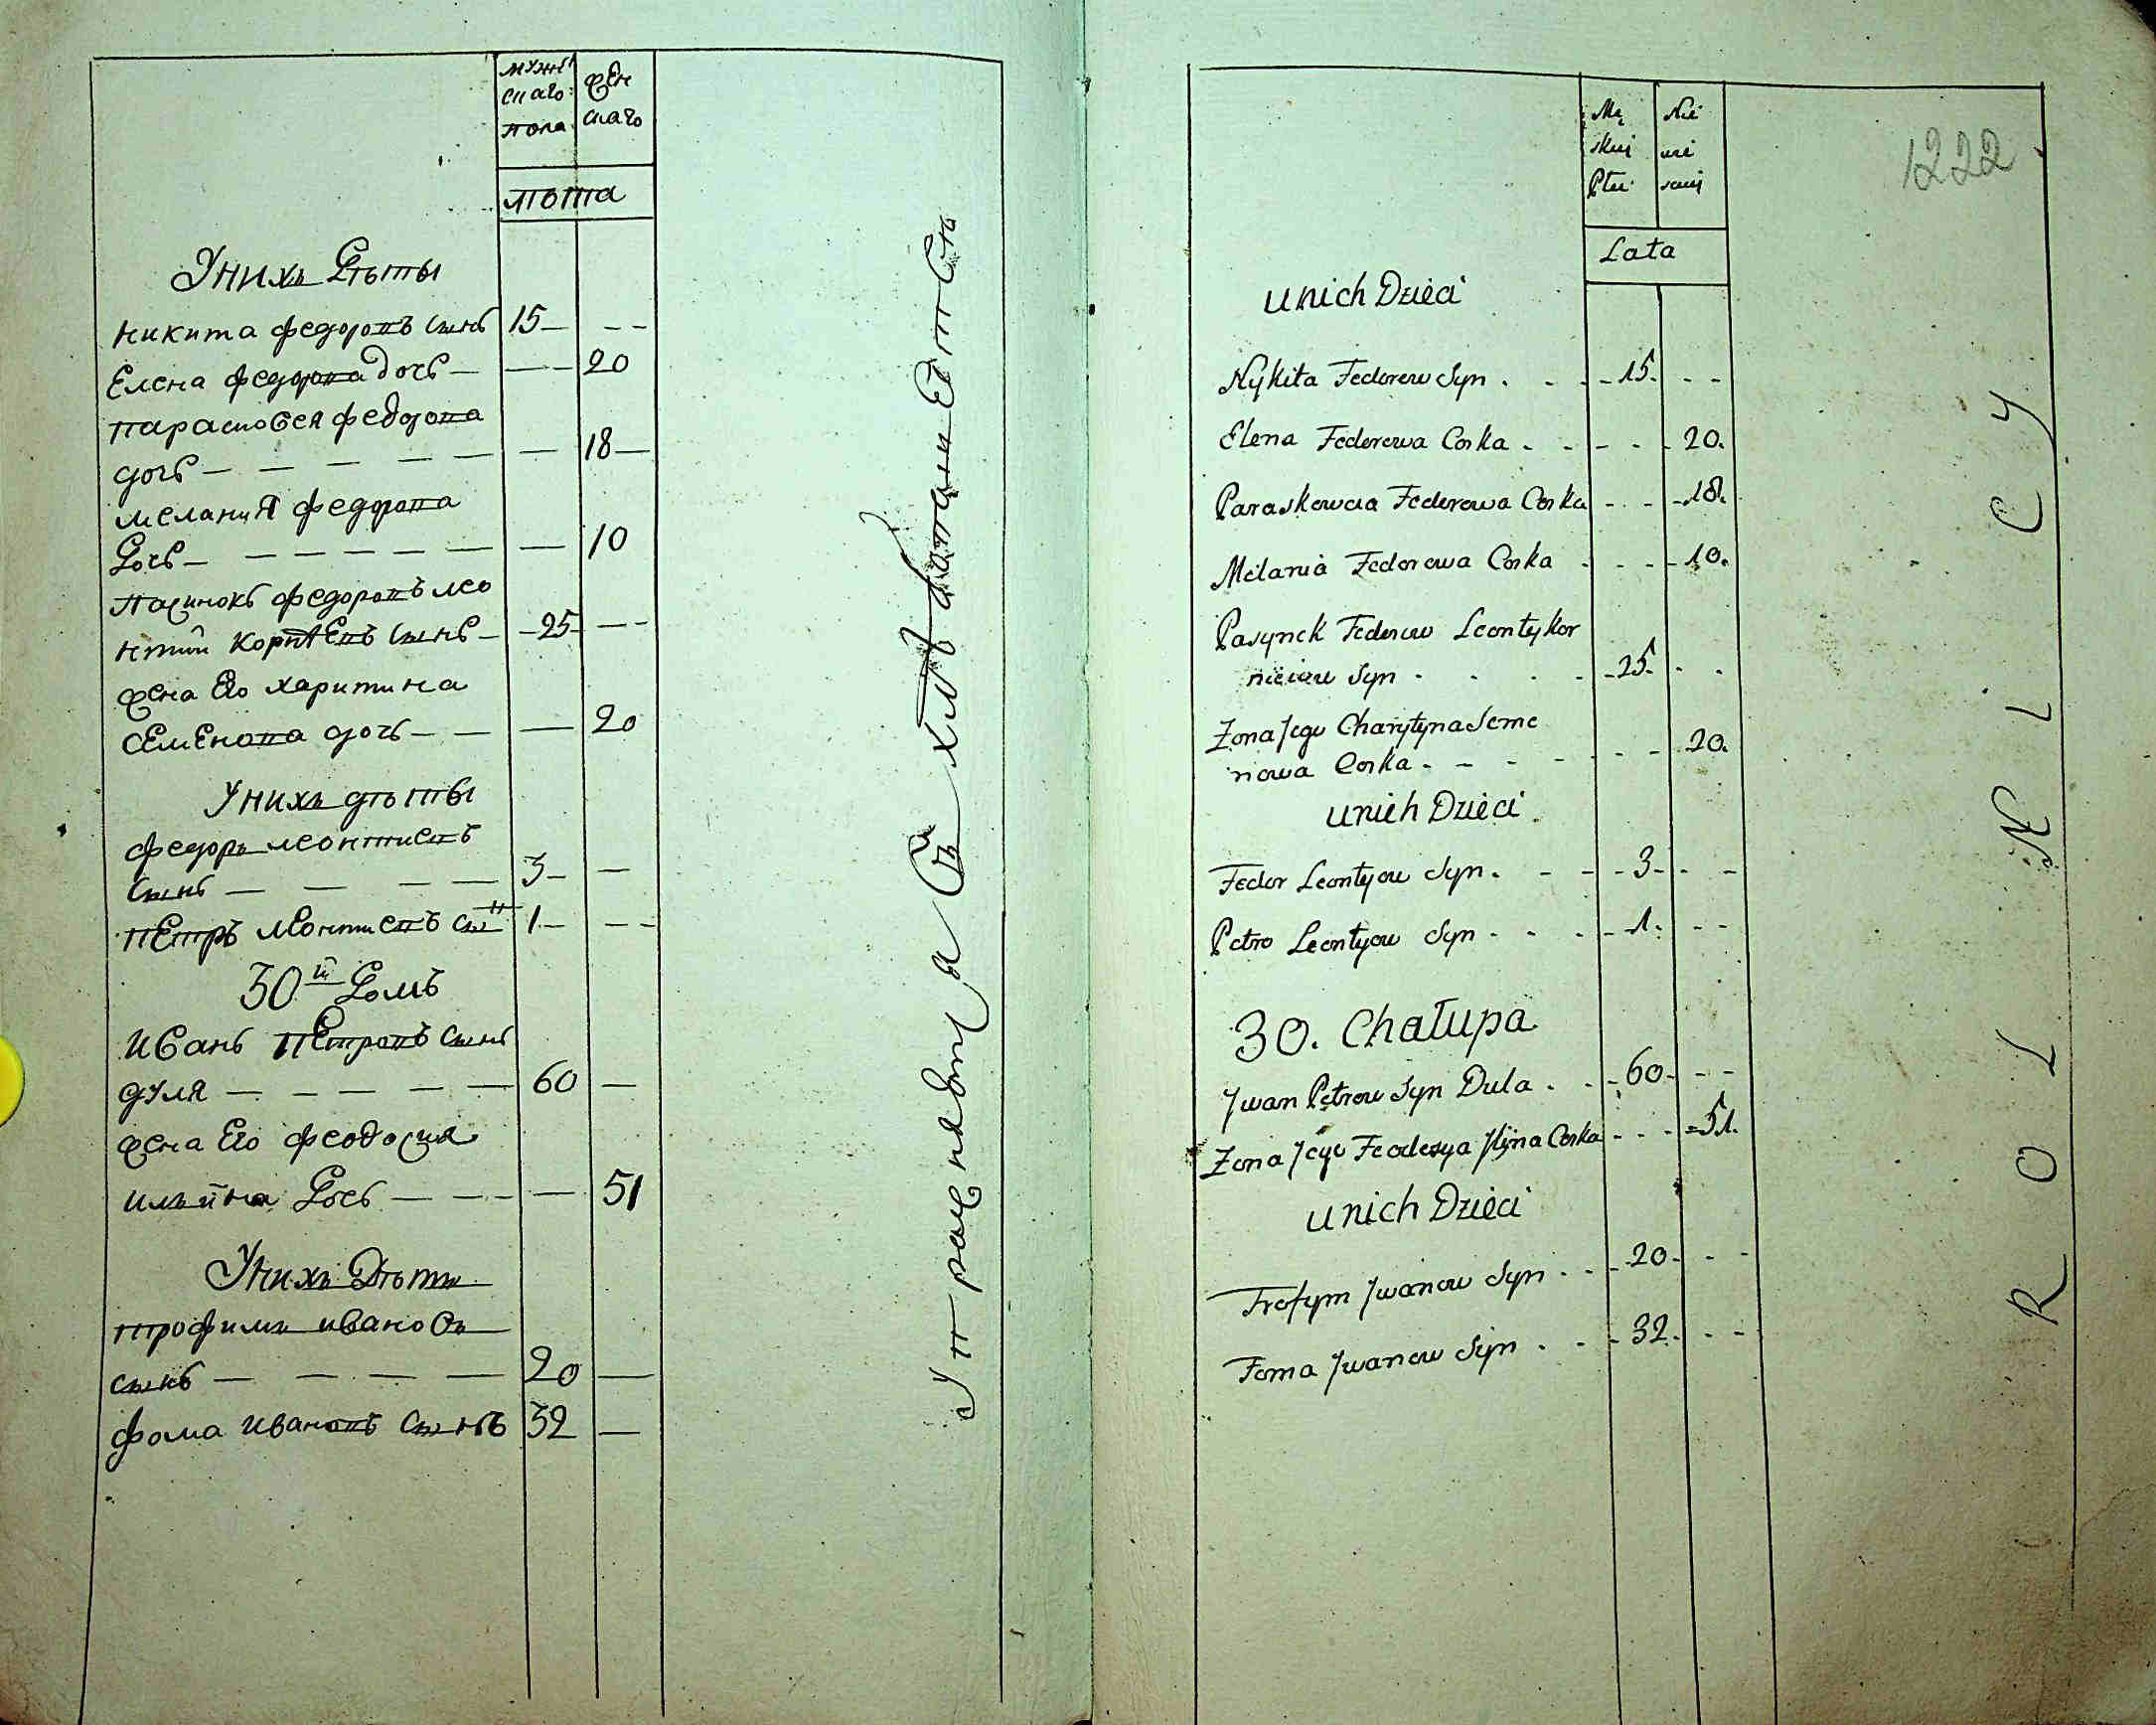 мужс
скаго
пола
жен
скаго
лѣта
У нихъ Дѣты
Никита Федоровъ сынъ 15 — - -
Елена Федорова дочь — — — 20
Парасковея Федорова
дочь — — — — — — 18 —
Мелания Федорова
Дочь — — — — — — — 10
Пасинокъ Федоровъ Лео
нтий Корнѣевъ сынъ — - 25 - — -
Жена Его Харитина
Семенова дочь — — — 20
У нихъ дѣты
Федоръ Леонтиевъ
сынъ — — — — 3 — —
Петръ Леонтиевъ сын 1 — - - -
30й Домъ
Иванъ Петровъ сынъ
Дуля — — — — — 60 —
Жена Его Феодосия
Ильина Дочь — — - - — 51
У нихъ Дѣты
Трофимъ Ивановъ
сынъ — — — — 20 —
Фома Ивановъ сынъ 32 —
1222
Mę
skiej
Płci
Nie
wie
sciej
Lata
unich Dzieci
Nykita Fedorow Syn . - - - 15. - -
Elena Fedorowa Corka . - - - - 20.
Paraskoweia Fedorowa Corka - - - - 18.
Melania Fedorowa Corka - - - - 10.
Pasynek Fedorow Leonty Kor
nieiew Syn - - - - - 25. - -
Zona Jego Charytyna Seme
nowa Corka - - - - - - 20.
unich Dzieci
Fedor Leontyow Syn. - - - 3 - - -
Petro Leontyow Syn - - - - 1. - -
30. Chałupa
Jwan Petrow Syn Dula . - - 60 - - -
Zona Jego Feodosya Jlijna Corka - - - = 51.
unich Dzieci
Trofym Jwanow Syn . - - 20 - - -
Foma Jwanow Syn . - - 32. - -
ROLNICY